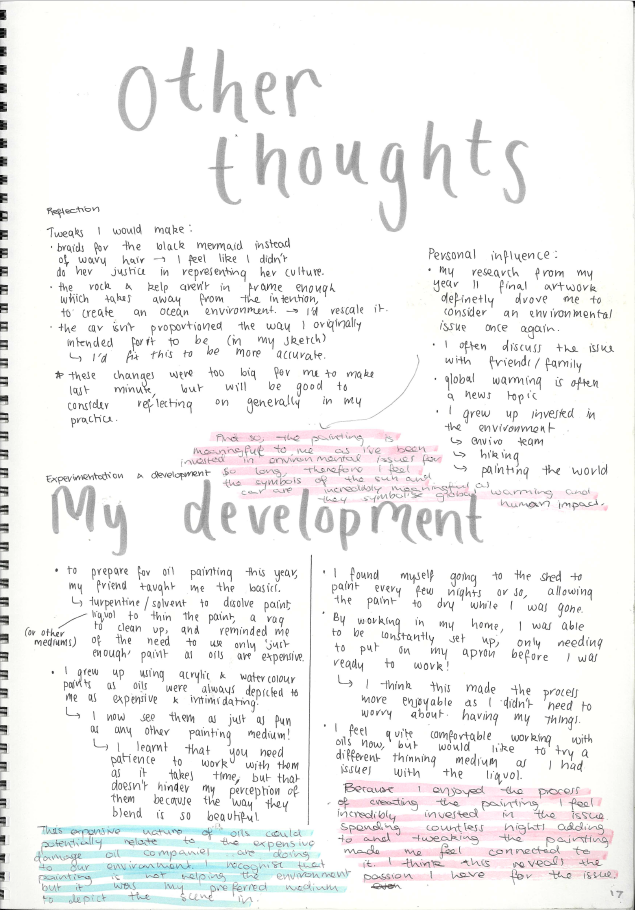 Other
thoughts
Reflection
Tweaks I would make:
• braids for the black mermaid instead
of wavy hair → I feel like I didn't
do her justice in representing her culture.
• the rock & kelp aren't in frame enough
which takes away from the intention,
to create an ocean environment. → I'd rescale it.
• the car isn't proportioned the way I originally
intended for it to be (in my sketch)
↳ I'd fix this to be more accurate.
* these changes were too big for me to make
last minute, but will be good to
consider reflecting on generally in my
practice.
Personal influence:
• my research from my
year 11 final artwork
definetly drove me to
consider an environmental
issue once again.
• I often discuss the issue
with friends/family
• global warming is often
a news topic
• I grew up invested in
the environment
↳ enviro team
↳ hiking
↳ painting the world
And so, the painting is
meaningful to me as I've been
invested in environmental issues for
so long, therefore I feel
the symbols of the sun and
car are incredibly meaningful as
they symbolise global warming and
human impact.
Experimentation & development
My development
• to prepare for oil painting this year,
my friend taught me the basics.
↳ turpentine/solvent to disolve paint,
liquol to thin the paint, a rag
to clean up, and reminded me
of the need to use only 'just
enough' paint as oils are expensive.
(or other
mediums)
• I grew up using acrylic & watercolour
paints as oils were always depicted to
me as expensive & intimidating.
↳ I now see them as just as fun
as any other painting medium!
↳ I learnt that you need
patience to work with them
as it takes time, but that
doesn't hinder my perception of
them because the way they
blend is so beautiful.
This expensive nature of oils could
potentially relate to the expensive
damage oil companies are doing
to our environment. I recognise that
painting is not helping the environment
but it was my preferred medium
to depict the scene in.
• I found myself going to the shed to
paint every few nights or so, allowing
the paint to dry while I was gone.
• By working in my home, I was able
to be constantly set up, only needing
to put on my apron before I was
ready to work!
↳ I think this made the process
more enjoyable as I didn't need to
worry about having my things.
• I feel quite comfortable working with
oils now, but would like to try a
different thinning medium as I had
issues with the liquol.
Because I enjoyed the process
of creating the painting, I feel
incredibly invested in the issue.
Spending countless nights adding
to and tweaking the painting
made me feel connected to
it. I think this reveals the
passion I have for the issue.
17